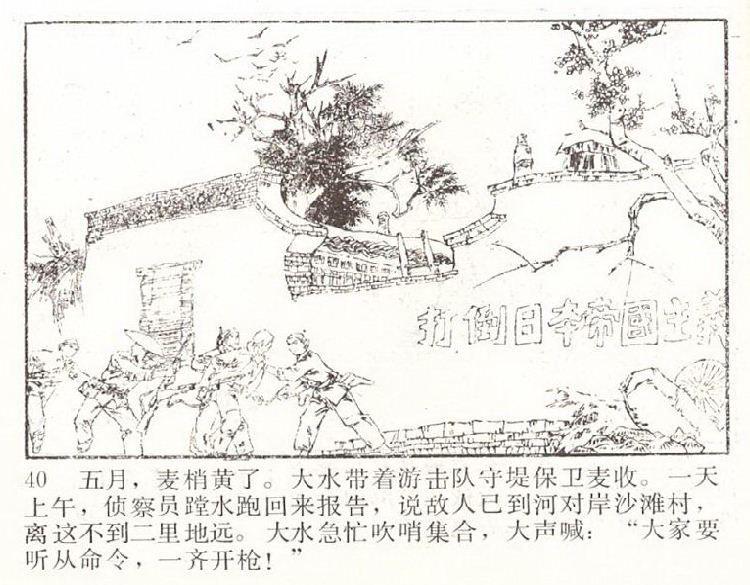 打倒日本帝國主義
40 五月，麦梢黄了。大水带着游击队守堤保卫麦收。一天
上午，侦察员蹚水跑回来报告，说故人已到河对岸沙滩村，
离这不到二里地远。大水急忙吹哨集合，大声喊：“大家要
听从命令，一齐开枪！”